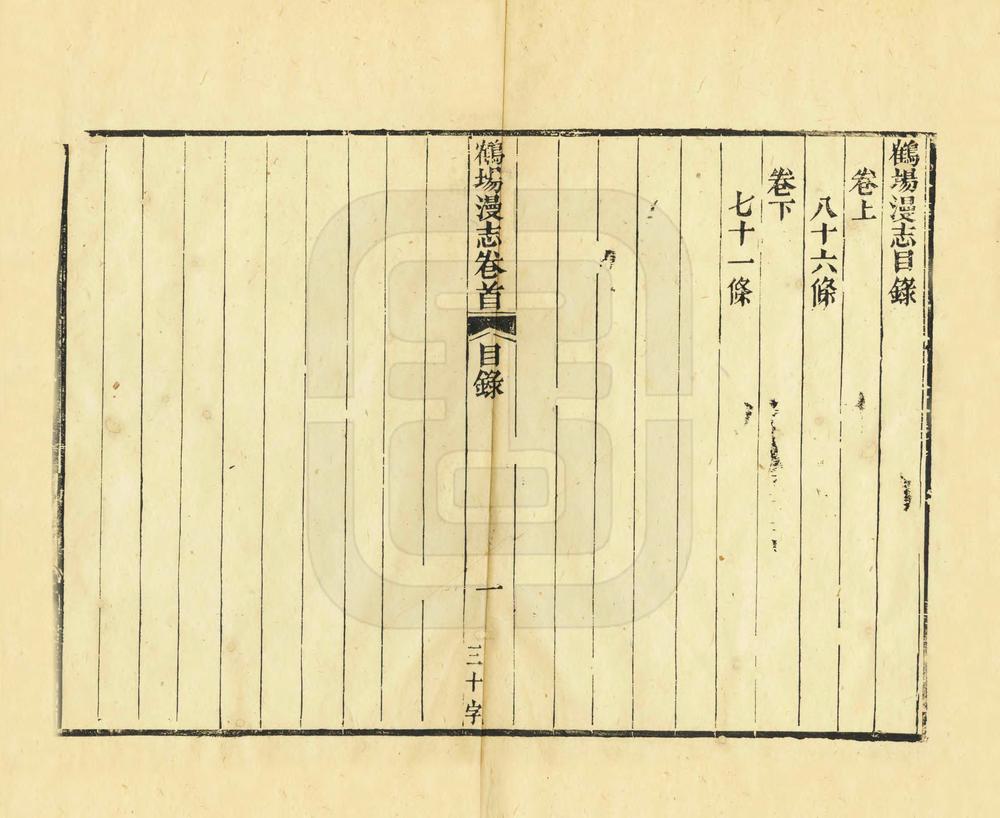 鶴場漫志目錄
卷上
八十六條
卷下
七十一條
鶴場漫志卷首
目錄
一
三十字